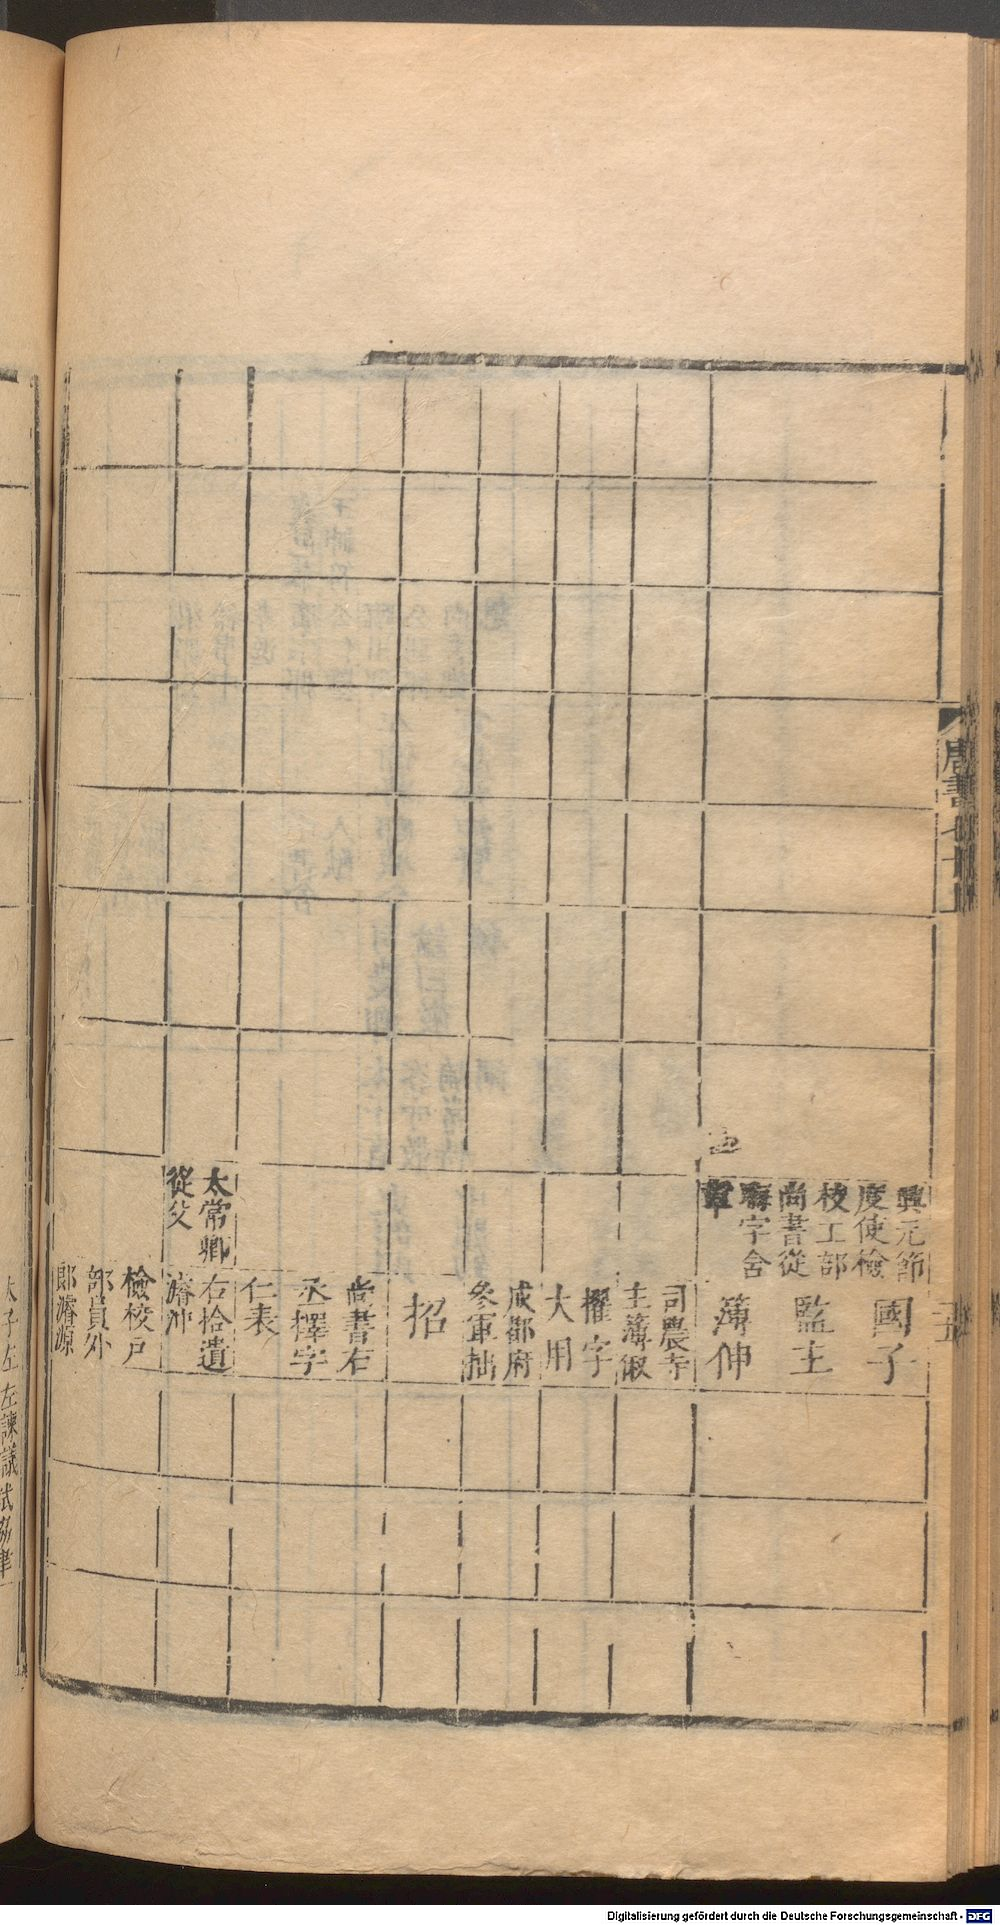 唐書七十
五
興元節
度使檢
校工部
尚書從
字舍
國子
監主
簿伸
司農寺
主簿俶
擢字
大用
成都府
參軍拙
招
尚書右
丞擇字
仁表
太常卿
從父
右拾遺
濬沖
檢校戶
部員外
郎濬源
太子左
左諫議
Digitalisierung gefördert durch die Deutsche Forschungsgemeinschaft - DFG